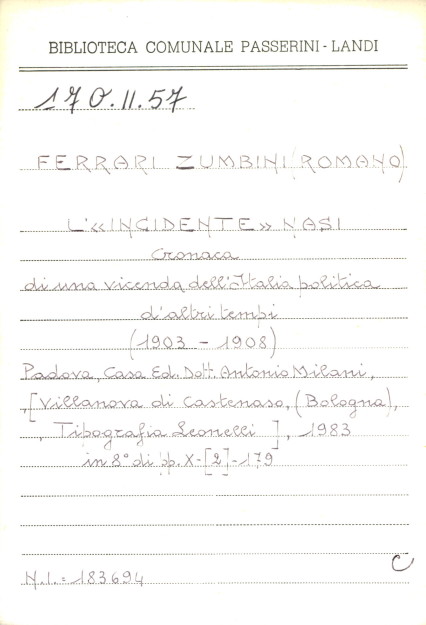 BIBLIOTECA COMUNALE PASSERINI - LANDI
170.II.57
FERRARI ZUMBINI (ROMANO)
L'«INCIDENTE» NASI
Cronaca
di una vicenda dell'Italia politica
d'altri tempi
(1903 - 1908)
Padova, Casa Ed. Dott. Antonio Milani,
,[Villanova di Castenaso, (Bologna),
, Tipografia Leonelli ], 1983
in 8° di pp. X-[2]-179
C
N.I.=183694